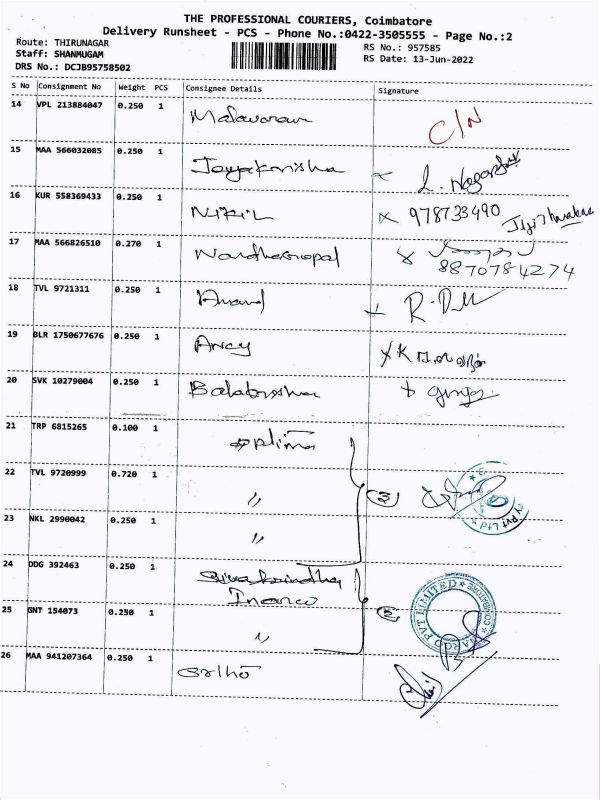 THE PROFESSIONAL COURIERS, Coimbatore
Delivery Runsheet - PCS - Phone No.:0422-3505555 - Page No.:2
Route: THIRUNAGAR
Staff: SHANMUGAM
DRS No.: DCJB95758502
RS No.: 957585
RS Date: 13-Jun-2022
S No Consignment No Weight PCS Consignee Details Signature
14 VPL 213884047 0.250 1 C/N
15 MAA 566032085 0.250 1 Jayakrisha
16 KUR 558369433 0.250 1 Nikil x 978733490
17 MAA 566826510 0.270 1 Nandhagopal x
8870784274
18 TVL 9721311 0.250 1 Anand
19 BLR 1750677676 0.250 1 Ancy
20 SVK 10279004 0.250 1
21 TRP 6815265 0.100 1 optima
22 TVL 9720999 0.720 1 " 3
23 NKL 2990042 0.250 1 "
24 DDG 392463 0.250 1
25 GNT 154073 0.250 1 "
PVT LIMITED
26 MAA 941207364 0.250 1 ortho